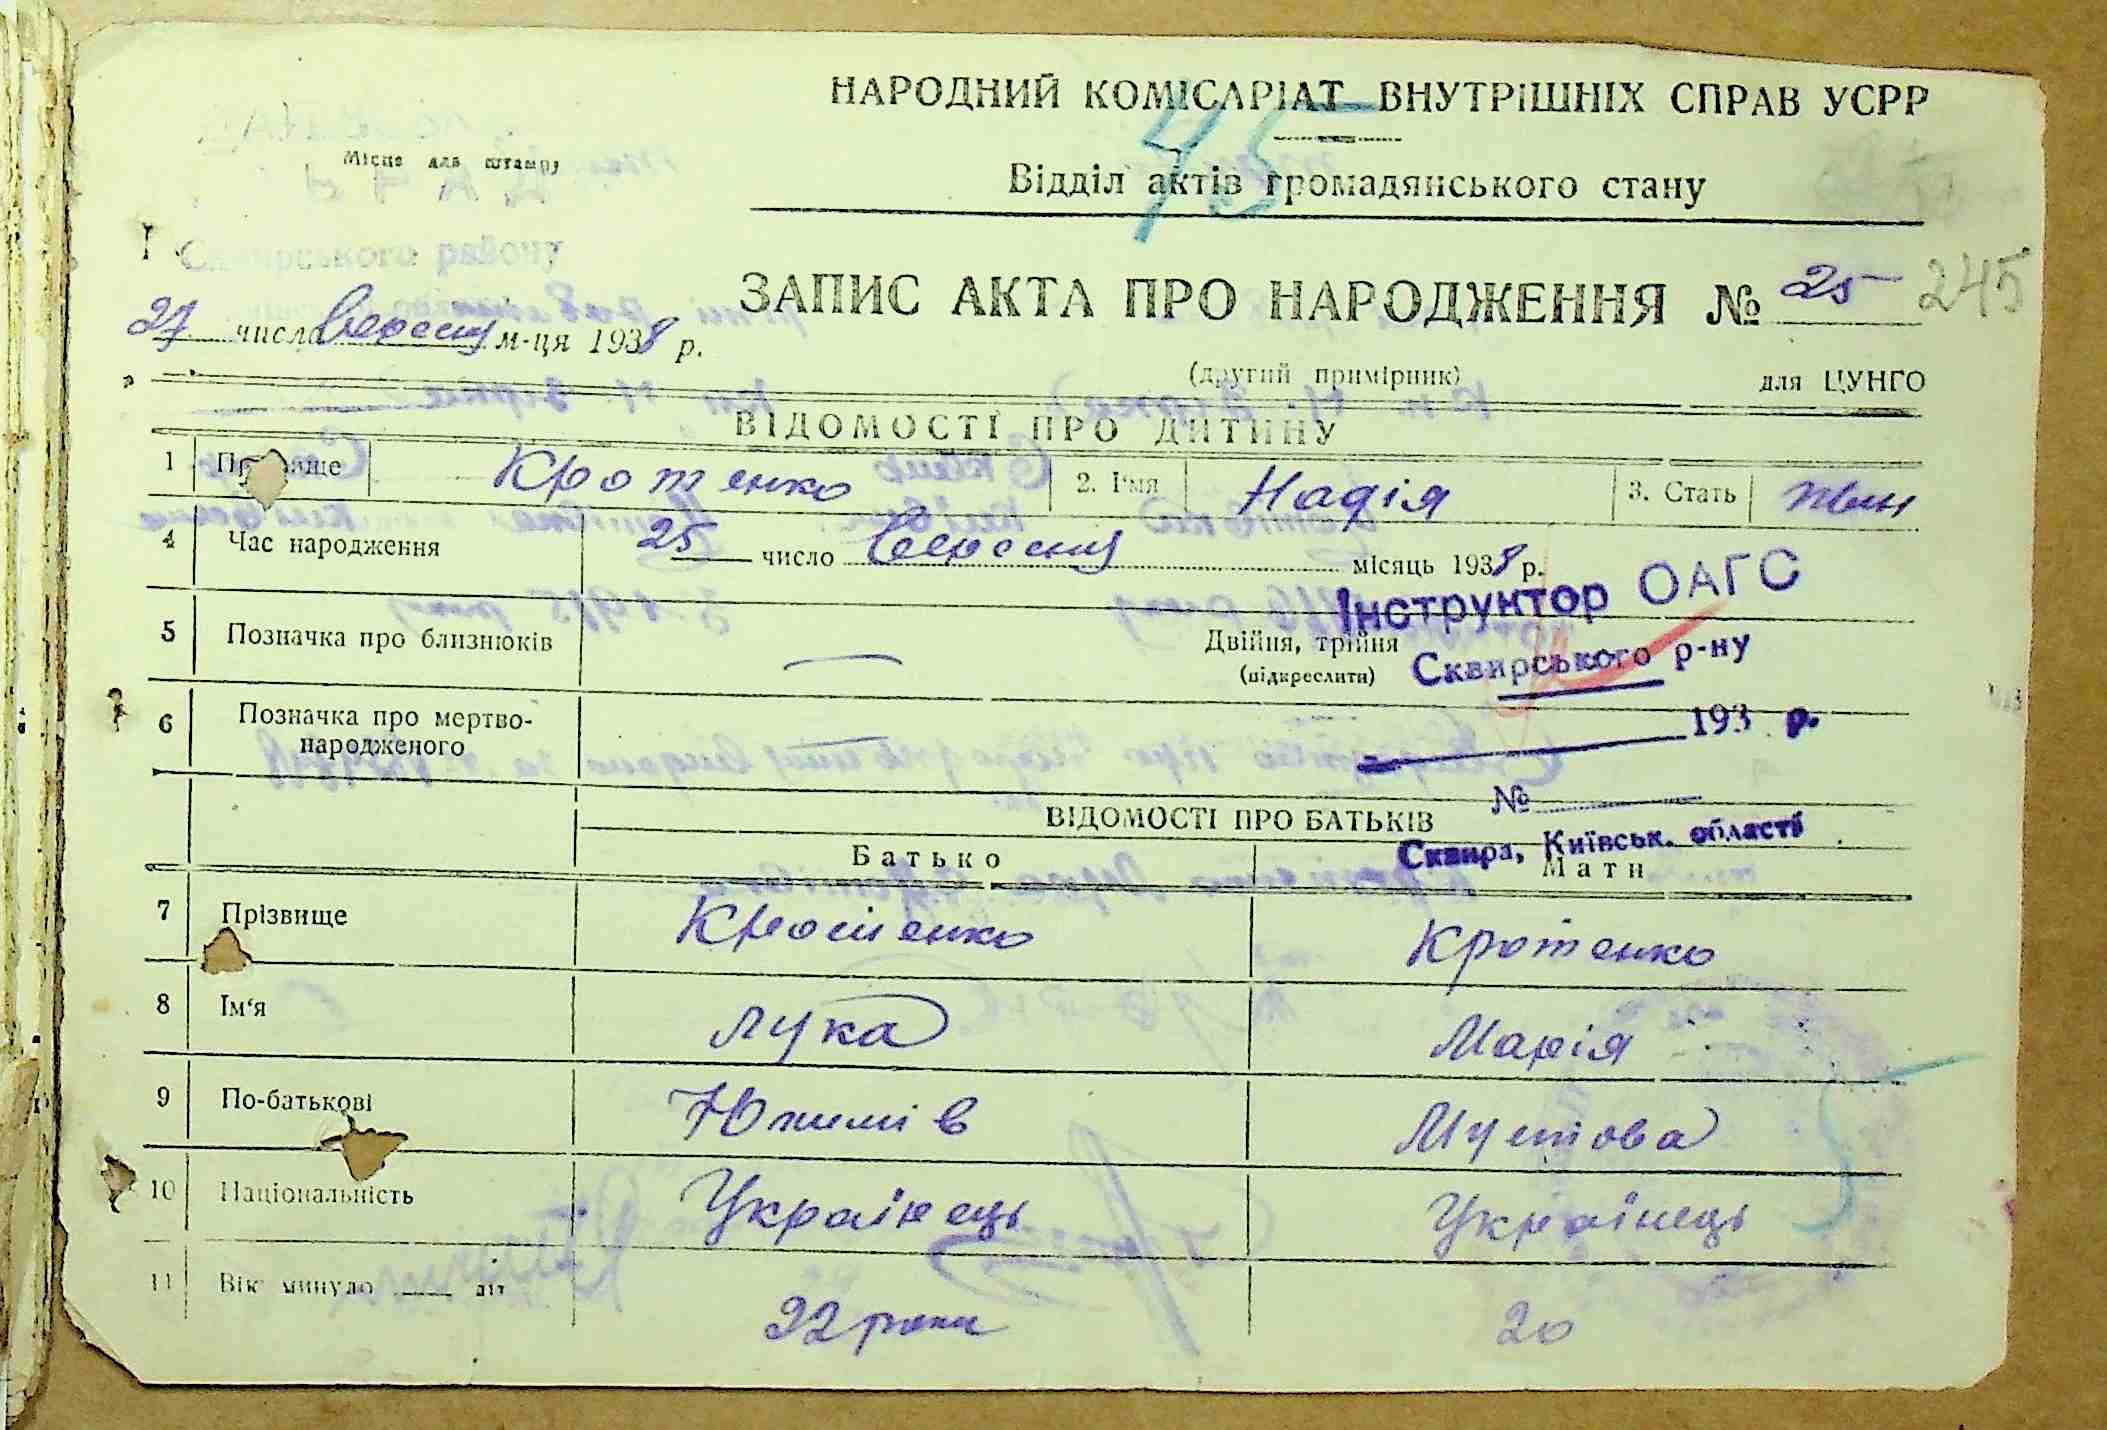 НАРОДНИЙ КОМІСАРІАТ ВНУТРІШНІХ СПРАВ УСРР
45
Місце для штампу
Відділ актів громадянського стану
Сквирського району
ЗАПИС АКТА ПРО НАРОДЖЕННЯ № 25 245
27 числа Вересня м-ця 1938 р.
(другий примірник) для ЦУНГО
ВІДОМОСТІ ПРО ДИТИНУ
1 Прізвище Кротенко 2. Ім'я Надія 3. Стать жін
4 Час народження 25 число Вересня місяць 1938 р.
Інструктор ОАГС
5 Позначка про близнюків — Двійня, трійня
(підкреслити)
Сквирського р-ну
6 Позначка про мертво-
народженого
193 р.
№
ВІДОМОСТІ ПРО БАТЬКІВ
Сквира, Київськ. області
Батько Мати
7 Прізвище Кротенко Кротенко
8 Ім'я Лука Марія
9 По-батькові
10 Національність Українець Українець
11 Вік минуло літ 22 роки 20